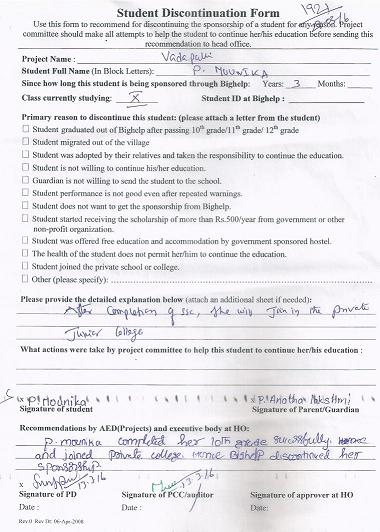 Student Discontinuation Form
Use this form to recommend for discontinuing the sponsorship of a student for any reason. Project
committee should make all attempts to help the student to continue her/his education before sending this
recommendation to head office.
Project Name : Vadapalli
Student Full Name (In Block Letters): P. MOUNIKA
Since how long this student is being sponsored through Bighelp: Years: 3 Months:
Class currently studying: X Student ID at Bighelp :
Primary reason to discontinue this student: (please attach a letter from the student)
☐ Student graduated out of Bighelp after passing 10th grade/11th grade/ 12th grade
☐ Student migrated out of the village
☐ Student was adopted by their relatives and taken the responsibility to continue the education.
☐ Student is not willing to continue his/her education.
☐ Guardian is not willing to send the student to the school.
☐ Student performance is not good even after repeated warnings.
☐ Student does not want to get the sponsorship from Bighelp.
☐ Student started receiving the scholarship of more than Rs.500/year from government or other
non-profit organization.
☐ Student was offered free education and accommodation by government sponsored hostel.
☐ The health of the student does not permit her/him to continue the education.
☐ Student joined the private school or college.
☐ Other (please specify):
Please provide the detailed explanation below (attach an additional sheet if needed):
After Completion of ssc, she will Join in the private
Junior college
What actions were take by project committee to help this student to continue her/his education :
x P. Modnika x P. Anatha Lakshmi
Signature of student Signature of Parent/Guardian
Recommendations by AED(Projects) and executive body at HO:
P. mounika completed her 10th grade successfully
and joined private college. Hence Bighelp discontinued her
sponsorship
Signature of PD Signature of PCC/auditor Signature of approver at HO
Date : Date : Date :
Rev.0 Rev Dt: 06-Apr-2008